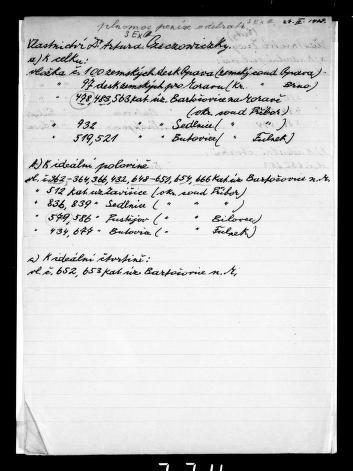 plnomoc peníze odebrati
3 Exh.
Vlastnictví Dr Artura Czeczowiczky.
a) K celku:
vložka č. 100 zemských desk Opava (zemský soud Opava).
" 97 desk zemských pro Moravu (kr. " Brno)
" 478, 483, 503 kat. úz. Bartošovice na Moravě
(okr. soud Příbor)
" 932 " Sedlnice ( " " )
" 519, 521 " Butovice ( " Fulnek)
b) K ideální polovině
vl. č. 362-364, 366, 432, 648-652, 654, 666 kat. úz. Bartošovice n. M.
" 512 kat. uz. (okr. soud Příbor)
" 836, 839 " Sedlnice ( " " " )
" 579, 586 " Pustějov ( " " Bílovec)
" 434, 677 " Butovice ( " " Fulnek)
c) K ideální čtvrtině:
vl. č. 652, 653 kat. úz. Bartošovice n. M.